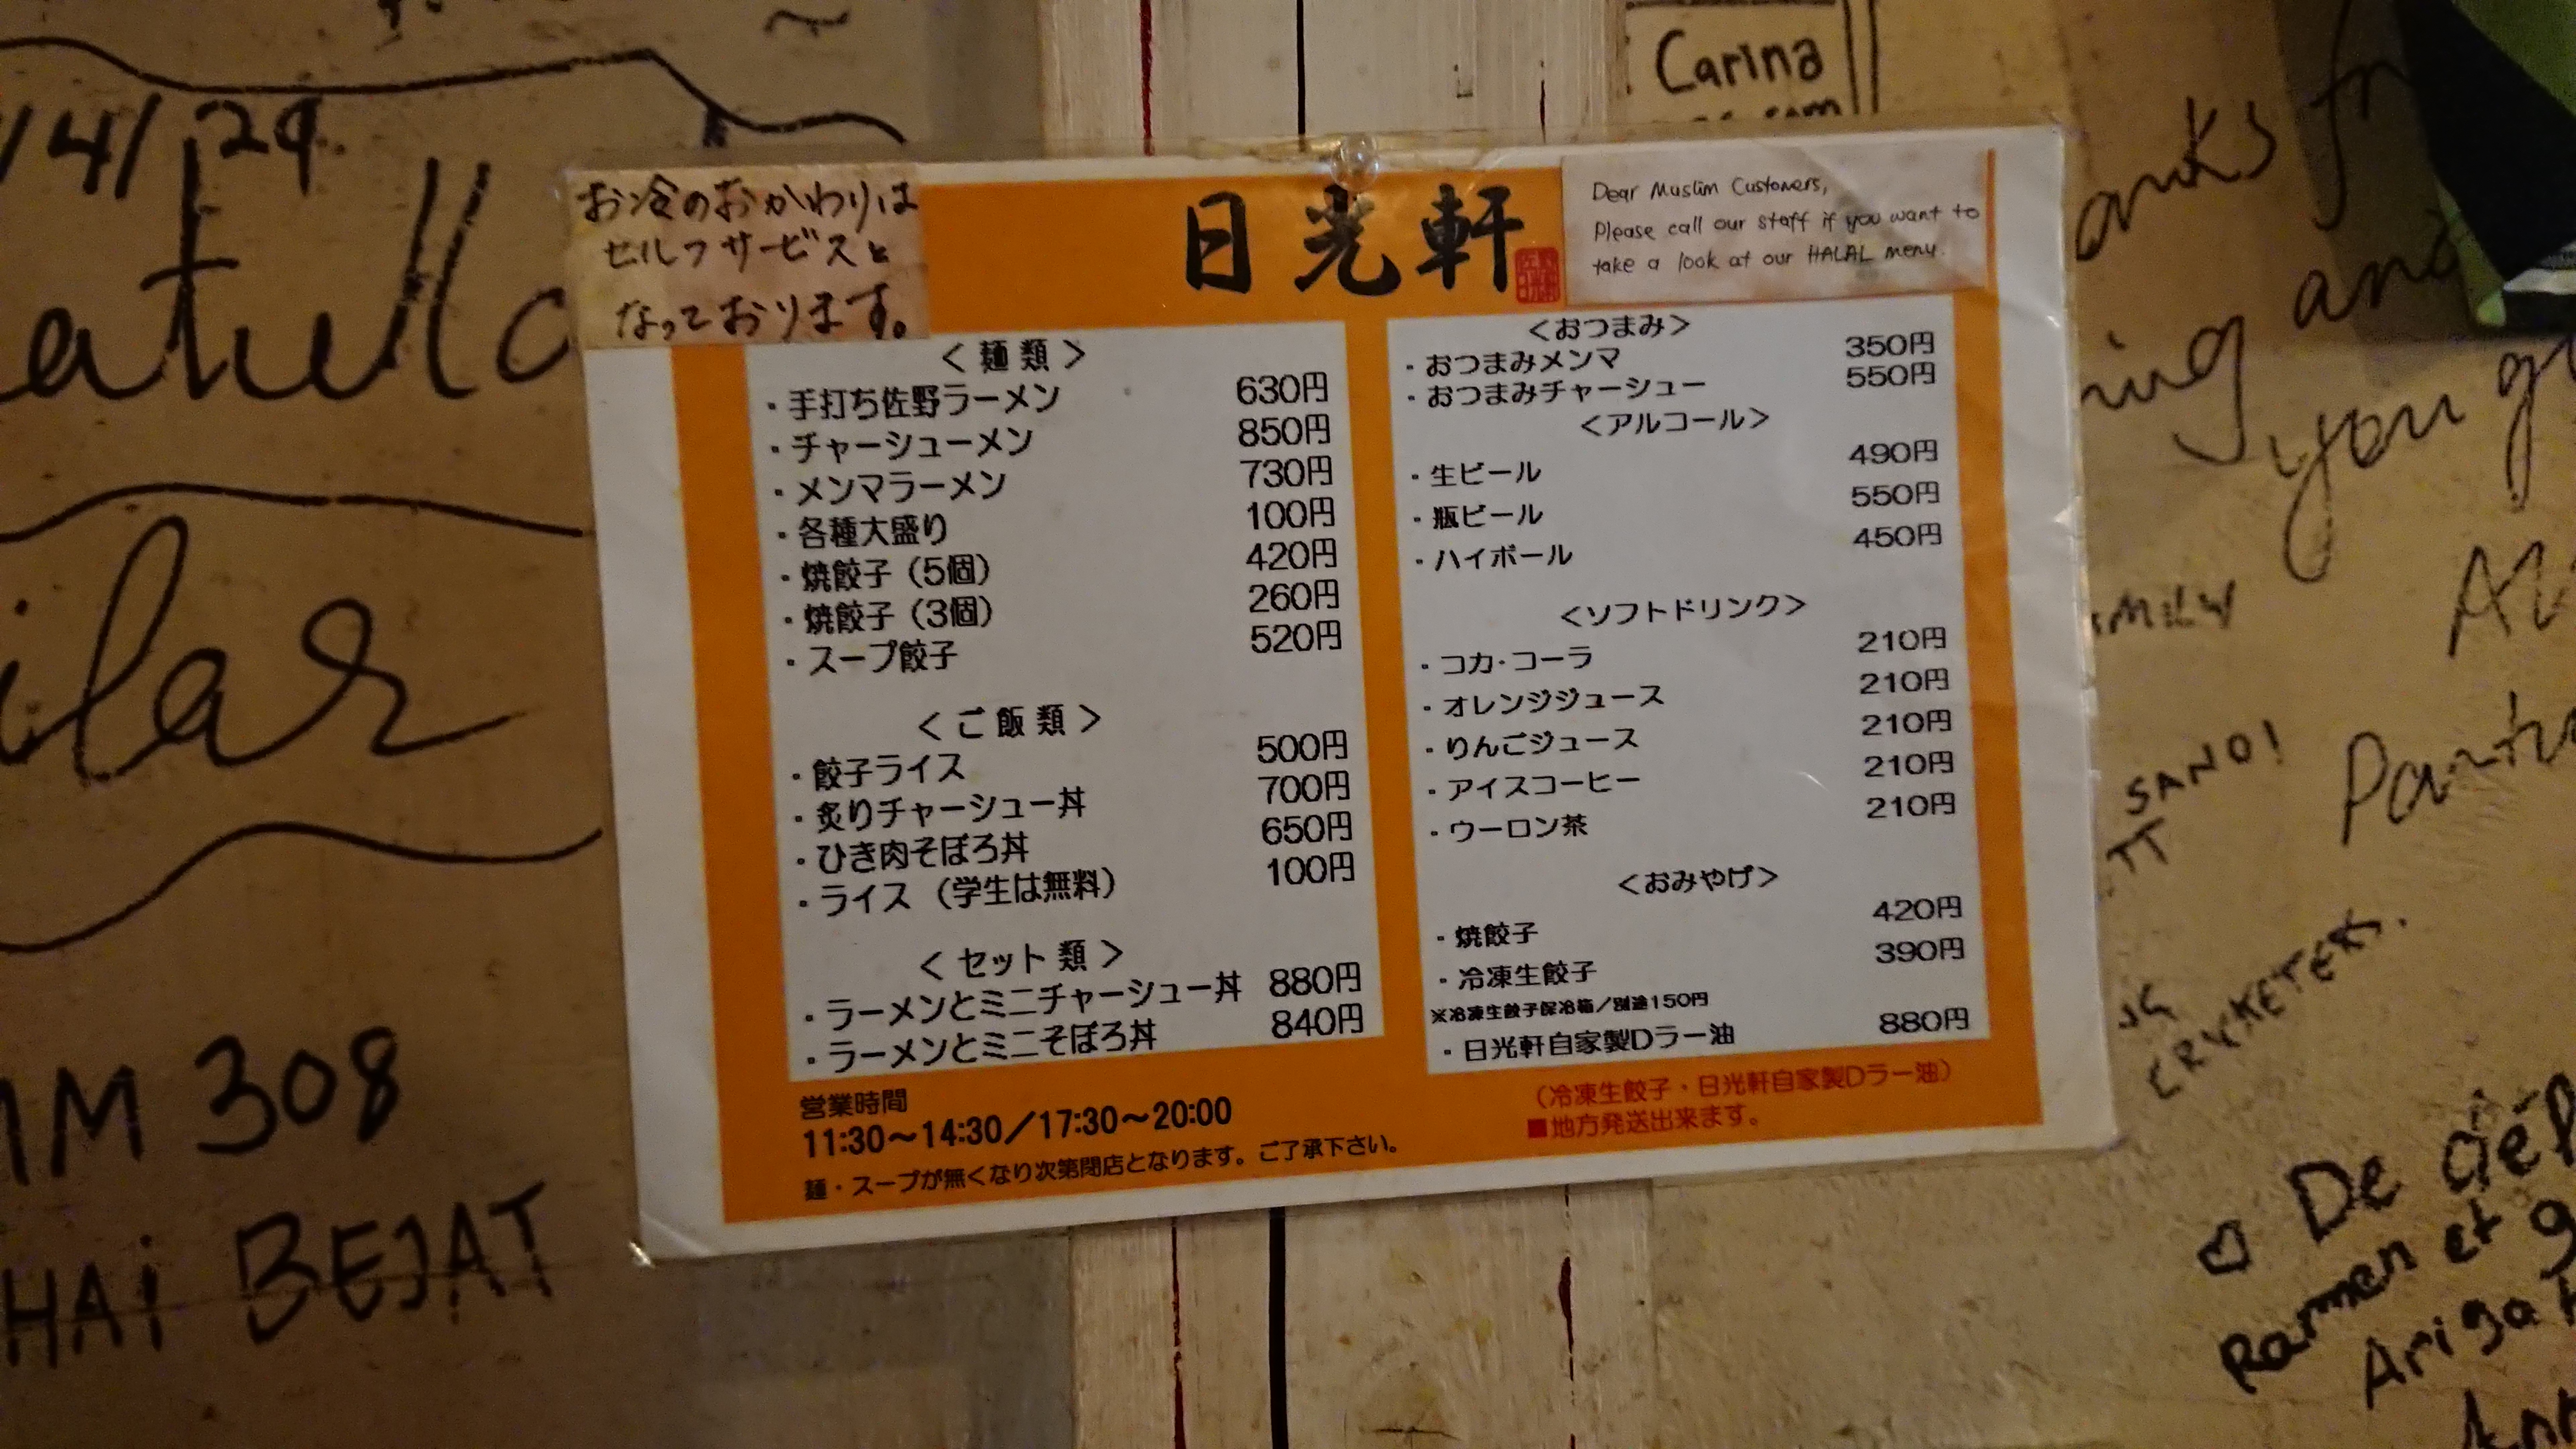 /4/29
atull
ilar
MM 308
HAi BEJAT
お冷のおかわりは
セルフサービスと
なっております。
日光軒
Dear Muslim Customers,
Please call our staff if you want to
take a look at our HALAL menu.
<麺類>
・手打ち佐野ラーメン 630円
・チャーシューメン 850円
・メンマラーメン 730円
・各種大盛り 100円
・焼餃子（5個） 420円
・焼餃子（3個） 260円
・スープ餃子 520円
<ご飯類>
・餃子ライス 500円
・炙りチャーシュー丼 700円
・ひき肉そぼろ丼 650円
・ライス（学生は無料） 100円
<セット類>
・ラーメンとミニチャーシュー丼 880円
・ラーメンとミニそぼろ丼 840円
<おつまみ>
・おつまみメンマ 350円
・おつまみチャーシュー 550円
<アルコール>
・生ビール 490円
・瓶ビール 550円
・ハイボール 450円
<ソフトドリンク>
・コカ・コーラ 210円
・オレンジジュース 210円
・りんごジュース 210円
・アイスコーヒー 210円
・ウーロン茶 210円
<おみやげ>
・焼餃子 420円
・冷凍生餃子 390円
※冷凍生餃子保冷箱／別途150円
・日光軒自家製Dラー油 880円
営業時間
11:30～14:30／17:30～20:00
麺・スープが無くなり次第閉店となります。ご了承下さい。
（冷凍生餃子・日光軒自家製Dラー油）
■地方発送出来ます。
Carina
and
you
SANO!
De
Ramen et